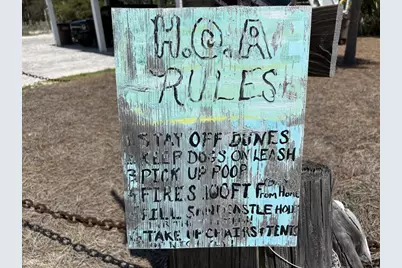 H.O.A
RULES
1 STAY OFF DUNES
2 KEEP DOGS ON LEASH
3 PICK UP POOP
4 FIRES 100FT From Home
FILL SANDCASTLE HOLE
TAKE UP CHAIRS + TENTS